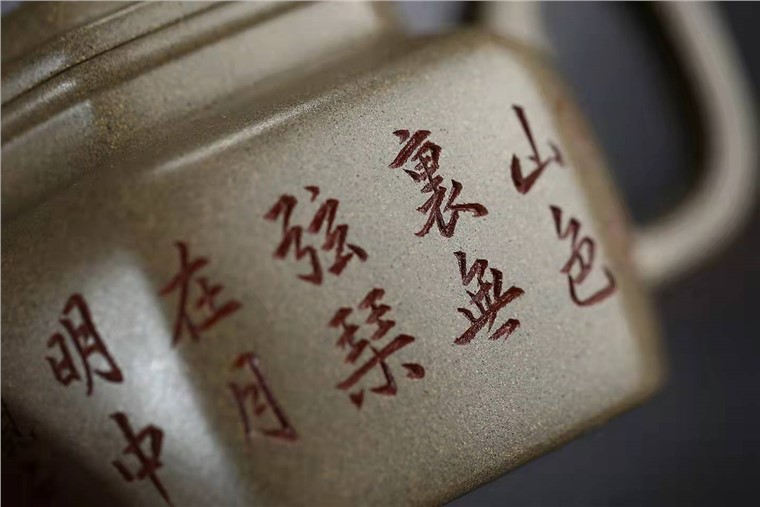 山色
裏無
弦琴
在月
明中